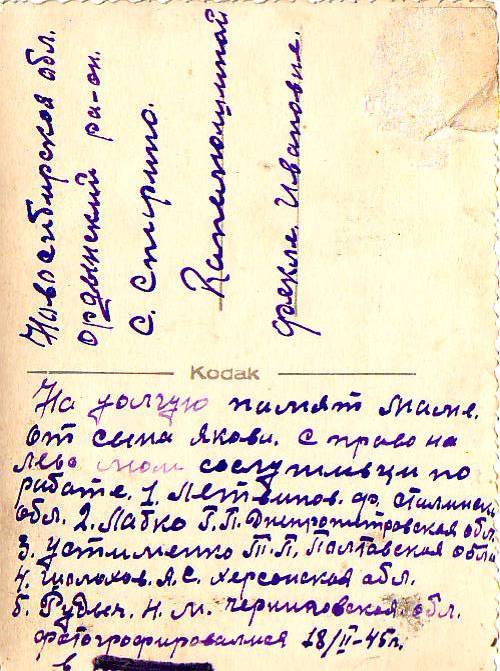 Новосибирская обл.
Ордынский ра-он.
с. Спирино.
Капелющиной
Фекле Ивановне.
Kodak
На долгую памят Маме.
от сына Якова. с право на
лево мои сослуживци по
работе. 1. Летвинов. ф. Сталинск.
обл. 2. Лабко Г.П. Днепропитровская обл.
3. Устименко Т.П. Полтавская обл.
4. А.С. Херсонская обл.
5. Рудыч. Н.М. Черниговская обл.
фотогрофировалися 18/II-45г.
в